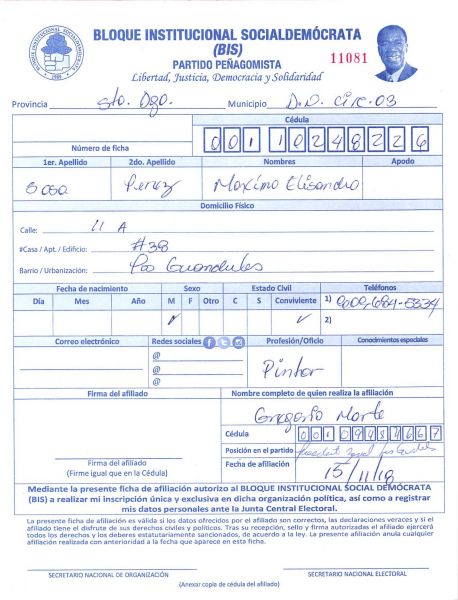 BLOQUE INSTITUCIONAL SOCIALDEMÓCRATA
(BIS)
PARTIDO PEÑAGOMISTA
11081
Libertad, Justicia, Democracia y Solidaridad
Provincia Sto. Dgo. Municipio D.N. Circ. 03
Cédula
Número de ficha 001 1024822 6
1er. Apellido 2do. Apellido Nombres Apodo
Sosa Perez Maximo Elisandro
Domicilio Físico
Calle: 11 A
#Casa / Apt. / Edificio: #38
Barrio / Urbanización: Guandules
Fecha de nacimiento Sexo Estado Civil Teléfonos
Día Mes Año M F Otro C S Conviviente 1) 684-5334
2)
Correo electrónico Redes sociales Profesión/Oficio Conocimientos especiales
@
@
@
Pintor
Firma del afiliado Nombre completo de quien realiza la afiliación
Gregorio Marte
Cédula 001 0948466 7
Posición en el partido
Firma del afiliado
(Firme igual que en la Cédula)
Fecha de afiliación 15/11/18
Mediante la presente ficha de afiliación autorizo al BLOQUE INSTITUCIONAL SOCIAL DEMÓCRATA
(BIS) a realizar mi inscripción única y exclusiva en dicha organización política, así como a registrar
mis datos personales ante la Junta Central Electoral.
La presente ficha de afiliación es válida si los datos ofrecidos por el afiliado son correctos, las declaraciones veraces y si el
afiliado tiene el disfrute de sus derechos civiles y políticos. Tras su recepción, sello y firma autorizados el afiliado ejercerá
todos los derechos y los deberes estatutariamente sancionados, de acuerdo a la ley. La presente afiliación anula cualquier
afiliación realizada con anterioridad a la fecha que aparece en esta ficha.
SECRETARIO NACIONAL DE ORGANIZACIÓN SECRETARIO NACIONAL ELECTORAL
(Anexar copia de cédula del afiliado)